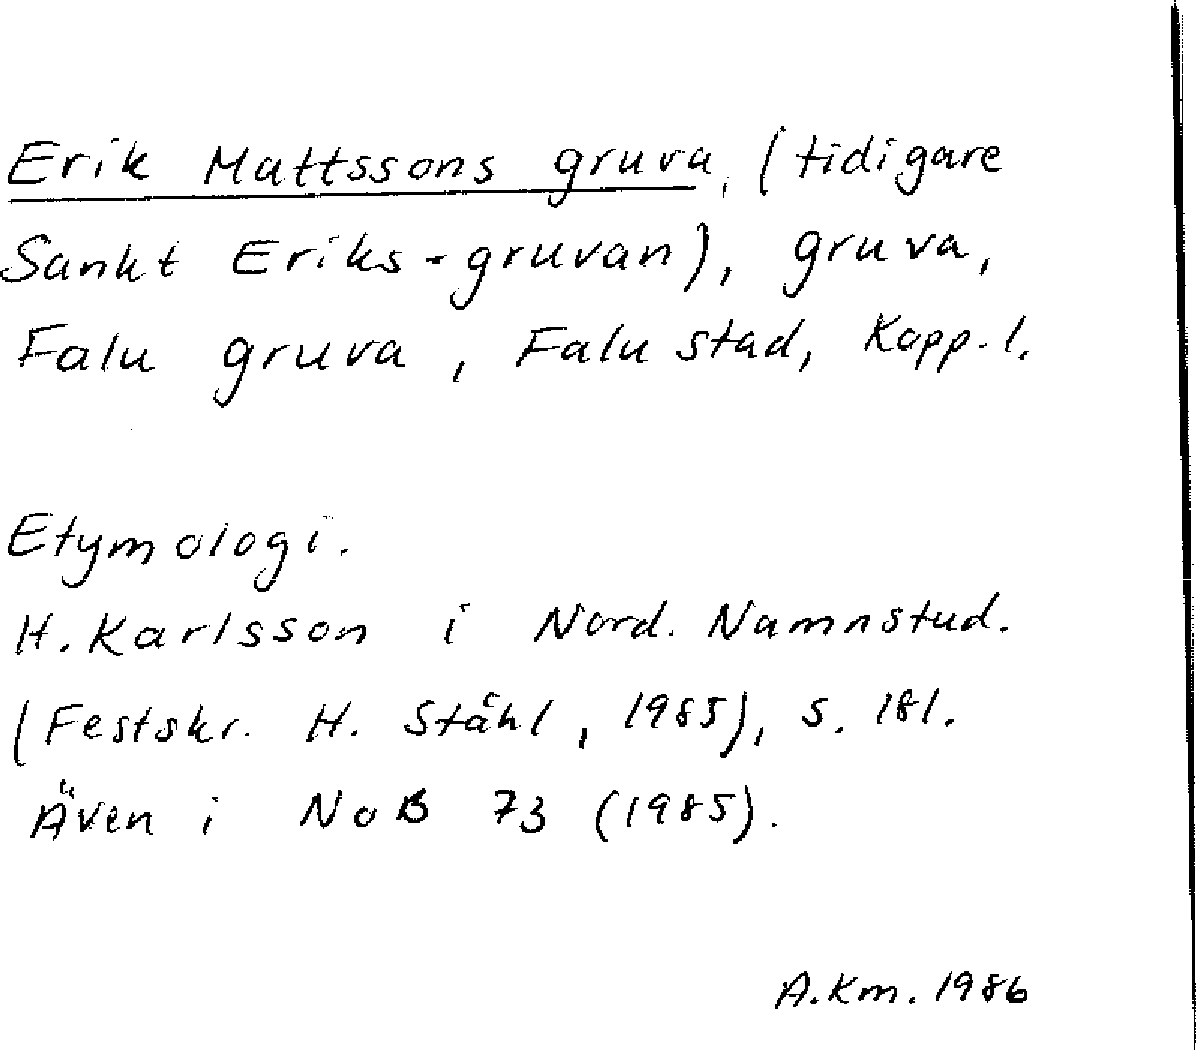 Erik Mattssons gruva, (tidigare
Sankt Eriks-gruvan), gruva,
Falu gruva, Falu stad, Kopp.l.
Etymologi.
H. Karlsson i Nord. Namnstud.
(Festskr. H. Ståhl, 1985), s. 181.
Även i NoB 73 (1985).
A.Km. 1986